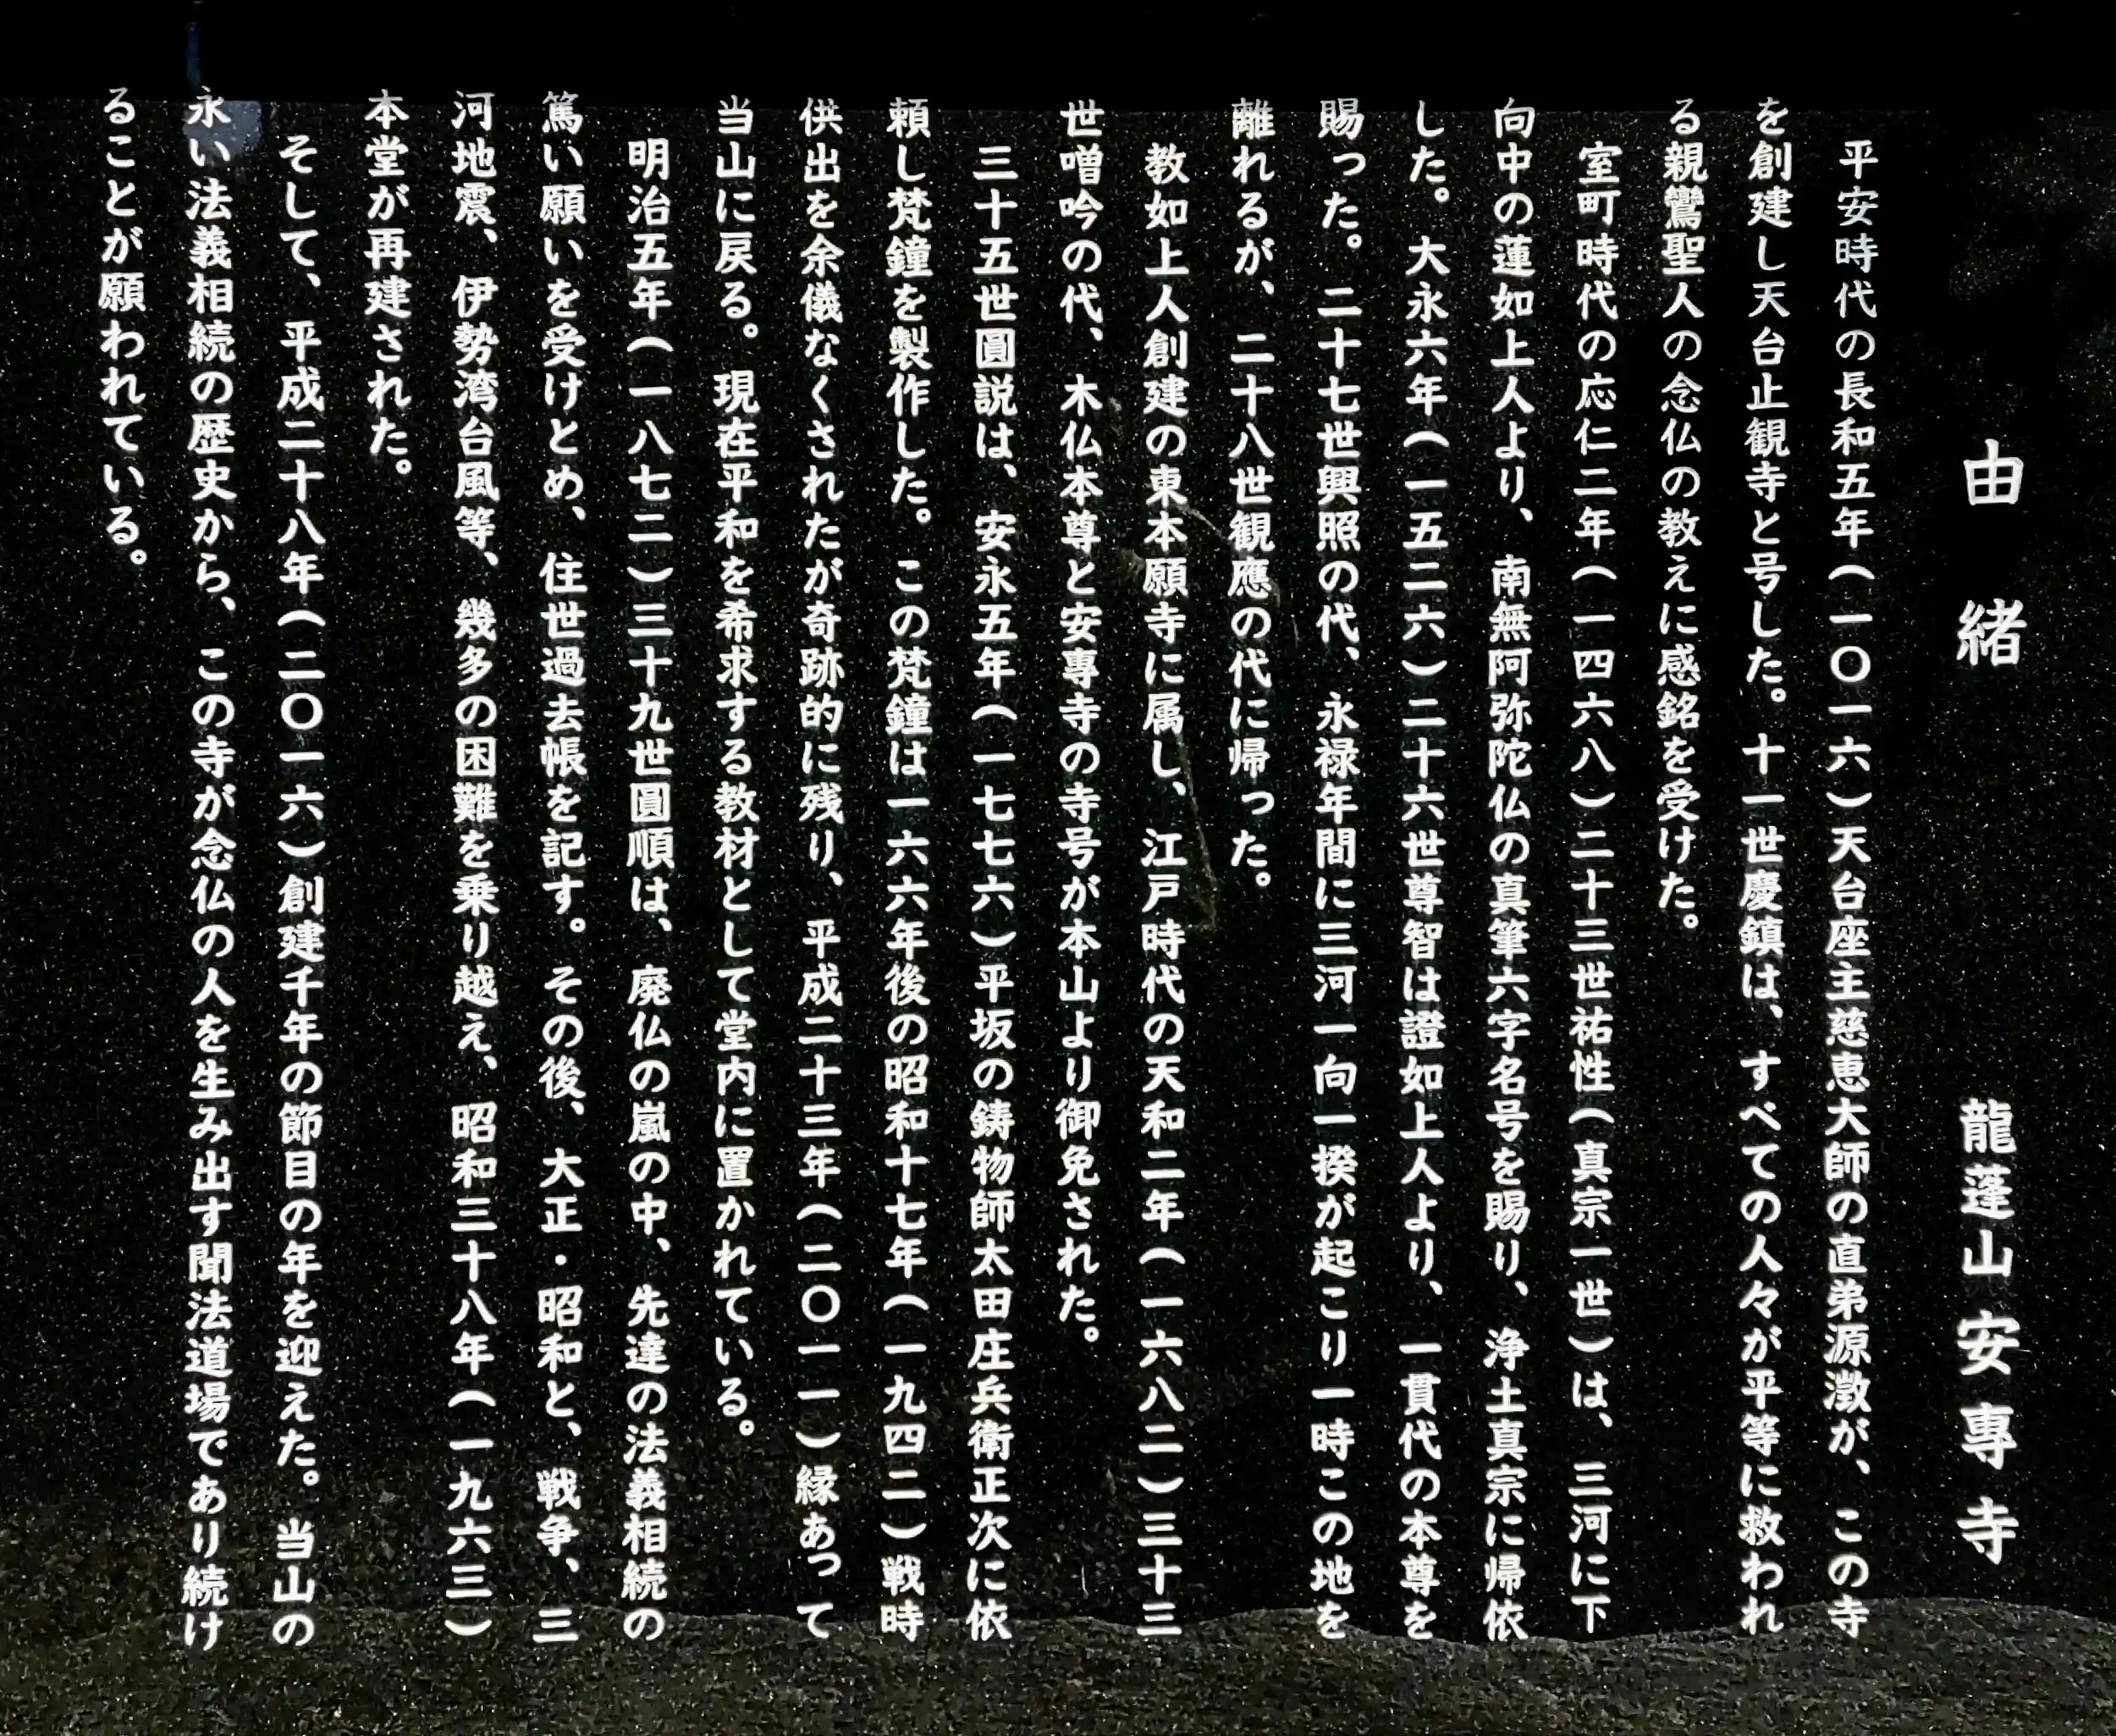 由緒 龍蓬山安専寺
平安時代の長和五年(一〇一六)天台座主慈恵大師の直弟源澂が、この寺
を創建し天台止観寺と号した。十一世慶鎮は、すべての人々が平等に救われ
る親鸞聖人の念仏の教えに感銘を受けた。
室町時代の応仁二年(一四六八)二十三世祐性(真宗一世)は、三河に下
向中の蓮如上人より、南無阿弥陀仏の真筆六字名号を賜り、浄土真宗に帰依
した。大永六年(一五二六)二十六世尊智は證如上人より、一貫代の本尊を
賜った。二十七世興照の代、永禄年間に三河一向一揆が起こり一時この地を
離れるが、二十八世観應の代に帰った。
教如上人創建の東本願寺に属し、江戸時代の天和二年(一六八二)三十三
世噌吟の代、木仏本尊と安專寺の寺号が本山より御免された。
三十五世圓説は、安永五年(一七七六)平坂の鋳物師太田庄兵衛正次に依
頼し梵鐘を製作した。この梵鐘は一六六年後の昭和十七年(一九四二)戦時
供出を余儀なくされたが奇跡的に残り、平成二十三年(二〇一一)縁あって
当山に戻る。現在平和を希求する教材として堂内に置かれている。
明治五年(一八七二)三十九世圓順は、廃仏の嵐の中、先達の法義相続の
篤い願いを受けとめ、住世過去帳を記す。その後、大正・昭和と、戦争、三
河地震、伊勢湾台風等、幾多の困難を乗り越え、昭和三十八年(一九六三)
本堂が再建された。
そして、平成二十八年(二〇一六)創建千年の節目の年を迎えた。当山の
永い法義相続の歴史から、この寺が念仏の人を生み出す聞法道場であり続け
ることが願われている。